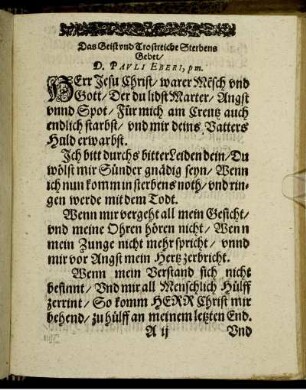 Das Geist vnd Trostreiche Sterbens
Gebet/
D. PAVLI EBERI, pm.
HErr Jesu Christ/ warer Mẽsch vnd
Gott/ Der du lidst Marter/ Angst
vnnd Spot/ Für mich am Creutz auch
endlich starbst/ vnd mir deins Vatters
Huld erwarbst.
Ich bitt durchs bitter Leiden dein/ Du
wölst mir Sünder gnädig seyn/ Wenn
ich nun komm in sterbens noth/ vnd rin-
gen werde mit dem Todt.
Wenn mir vergeht all mein Gesicht/
vnd meine Ohren hören nicht/ Wenn
mein Zunge nicht mehr spricht/ vnnd
mir vor Angst mein Hertz zerbricht.
Wenn mein Verstand sich nicht
besinnt/ Vnd mir all Menschlich Hülff
zerrint/ So komm HERR Christ mir
behend/ zu hülff an meinem letzten End.
A ij Vnd